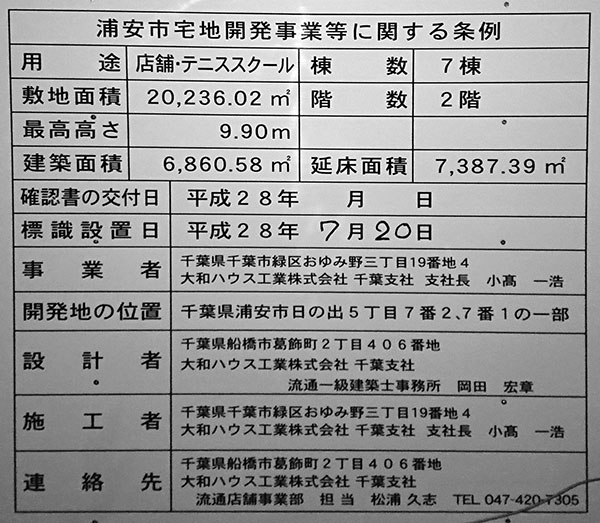 浦安市宅地開発事業等に関する条例
用途 店舗・テニススクール 棟数 7棟
敷地面積 20,236.02㎡ 階数 2階
最高高さ 9.90m
建築面積 6,860.58㎡ 延床面積 7,387.39㎡
確認書の交付日 平成28年 月 日
標識設置日 平成28年 7月20日
事業者 千葉県千葉市緑区おゆみ野三丁目19番地4
大和ハウス工業株式会社 千葉支社 支社長 小髙 一浩
開発地の位置 千葉県浦安市日の出5丁目7番2、7番1の一部
設計者 千葉県船橋市葛飾町2丁目406番地
大和ハウス工業株式会社 千葉支社
流通一級建築士事務所 岡田 宏章
施工者 千葉県千葉市緑区おゆみ野三丁目19番地4
大和ハウス工業株式会社 千葉支社 支社長 小髙 一浩
連絡先 千葉県船橋市葛飾町2丁目406番地
大和ハウス工業株式会社 千葉支社
流通店舗事業部 担当 松浦 久志 TEL 047-420-7305